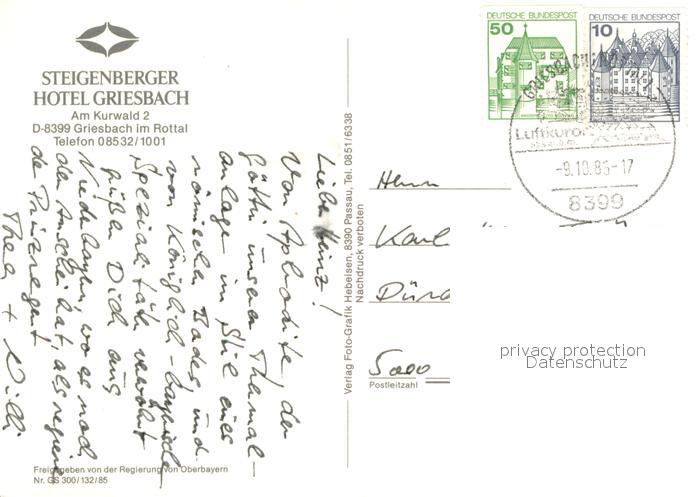 STEIGENBERGER
HOTEL GRIESBACH
Am Kurwald 2
D-8399 Griesbach im Rottal
Telefon 08532/1001
Lieber Heinz!
Von Aphrodite, der
Göttin unserer Thermal-
anlage im Stil eines
römischen Bades, und
von Königlich-bayrischen
Spezialitäten verwöhnt
grüßen Dich aus
Niederbayern, wo es noch
den Anschein hat, als regiere
der Prinzregent
Thea + Willi
Freigegeben von der Regierung von Oberbayern
Nr. GS 300/132/85
Verlag Foto-Grafik Hebeisen, 8390 Passau, Tel. 0851/6338
Nachdruck verboten
50 DEUTSCHE BUNDESPOST
10 DEUTSCHE BUNDESPOST
GRIESBACH I
Luftkurort
-9.10.86-17
8399
Herrn
Karl
Düre
5000
Postleitzahl
privacy protection
Datenschutz